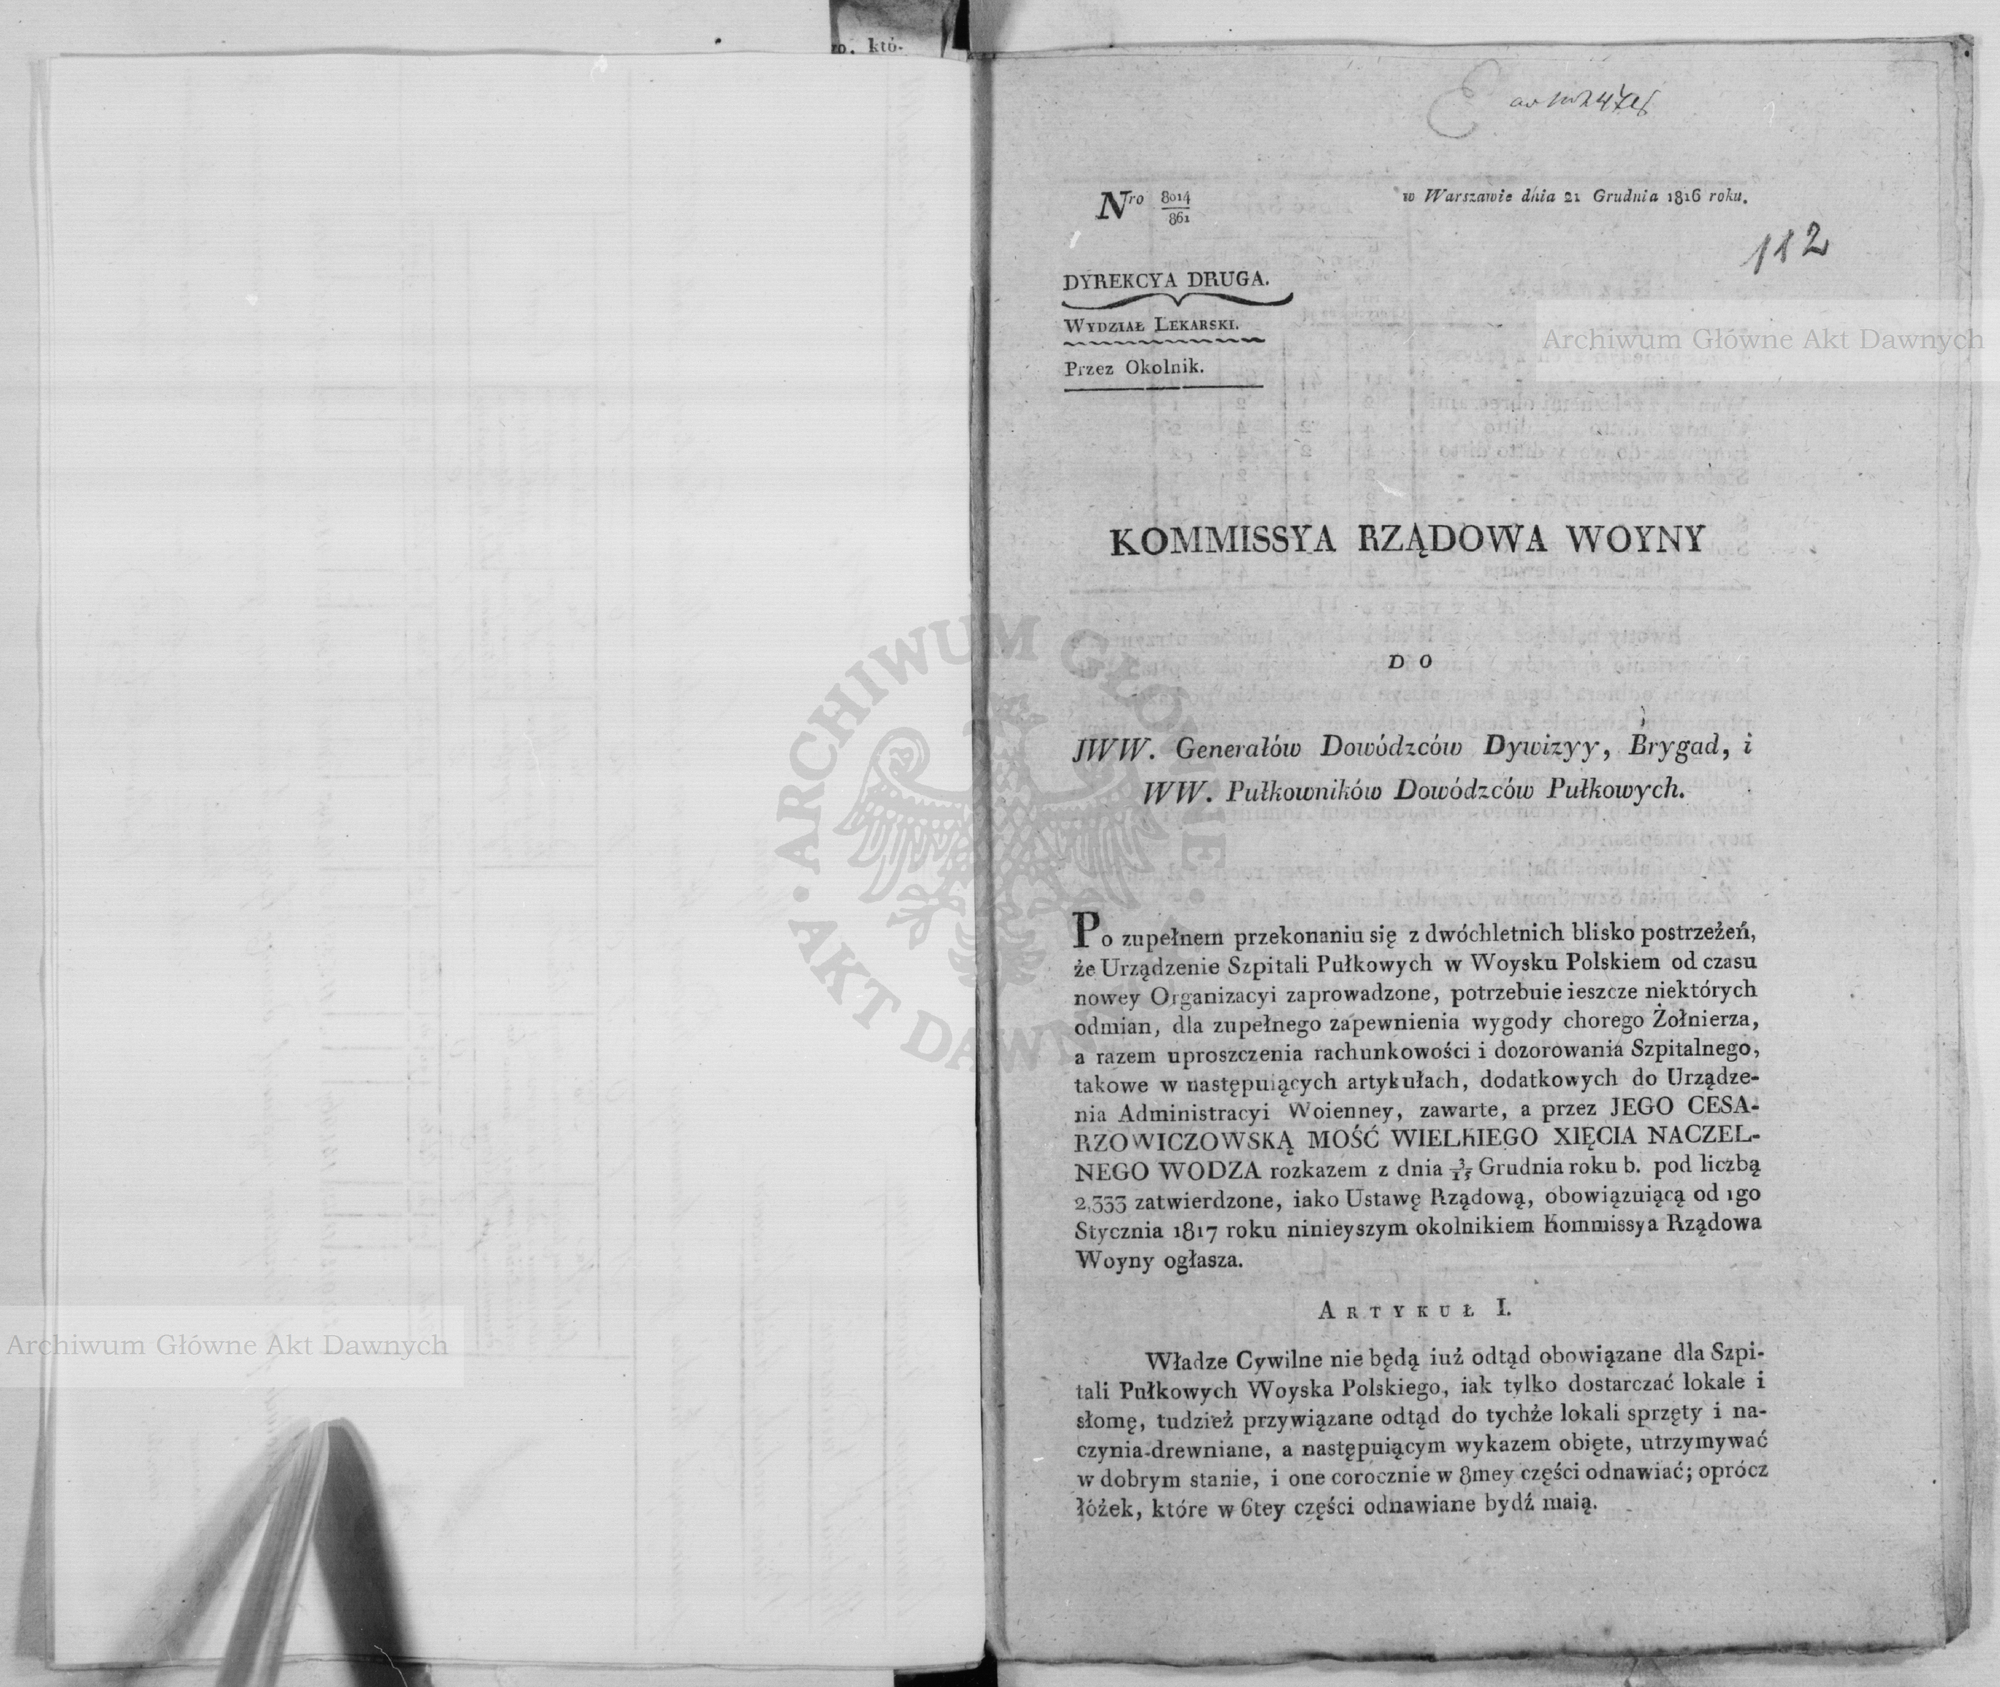 zo. któ-
Nro 8014/861
w Warszawie dnia 21 Grudnia 1816 roku.
112
DYREKCYA DRUGA.
WYDZIAŁ LEKARSKI.
Przez Okolnik.
Archiwum Główne Akt Dawnych
KOMMISSYA RZĄDOWA WOYNY
DO
JWW. Generałów Dowódzców Dywizyy, Brygad, i
WW. Pułkowników Dowódzców Pułkowych.
ARCHIWUM GŁÓWNE • AKT DAWNYCH •
Po zupełnem przekonaniu się z dwóchletnich blisko postrzeżeń,
że Urządzenie Szpitali Pułkowych w Woysku Polskiem od czasu
nowey Organizacyi zaprowadzone, potrzebuie ieszcze niektórych
odmian, dla zupełnego zapewnienia wygody chorego Żołnierza,
a razem uproszczenia rachunkowości i dozorowania Szpitalnego,
takowe w następuiących artykułach, dodatkowych do Urządze-
nia Administracyi Woienney, zawarte, a przez JEGO CESA-
RZOWICZOWSKĄ MOŚĆ WIELKIEGO XIĘCIA NACZEL-
NEGO WODZA rozkazem z dnia 3/15 Grudnia roku b. pod liczbą
2,333 zatwierdzone, iako Ustawę Rządową, obowiązuiącą od 1go
Stycznia 1817 roku ninieyszym okolnikiem Kommissya Rządowa
Woyny ogłasza.
ARTYKUŁ I.
Władze Cywilne nie będą iuż odtąd obowiązane dla Szpi-
tali Pułkowych Woyska Polskiego, iak tylko dostarczać lokale i
słomę, tudzież przywiązane odtąd do tychże lokali sprzęty i na-
czynia drewniane, a następuiącym wykazem obięte, utrzymywać
w dobrym stanie, i one corocznie w 8mey części odnawiać; oprócz
łóżek, które w 6tey części odnawiane bydź maią.
Archiwum Główne Akt Dawnych